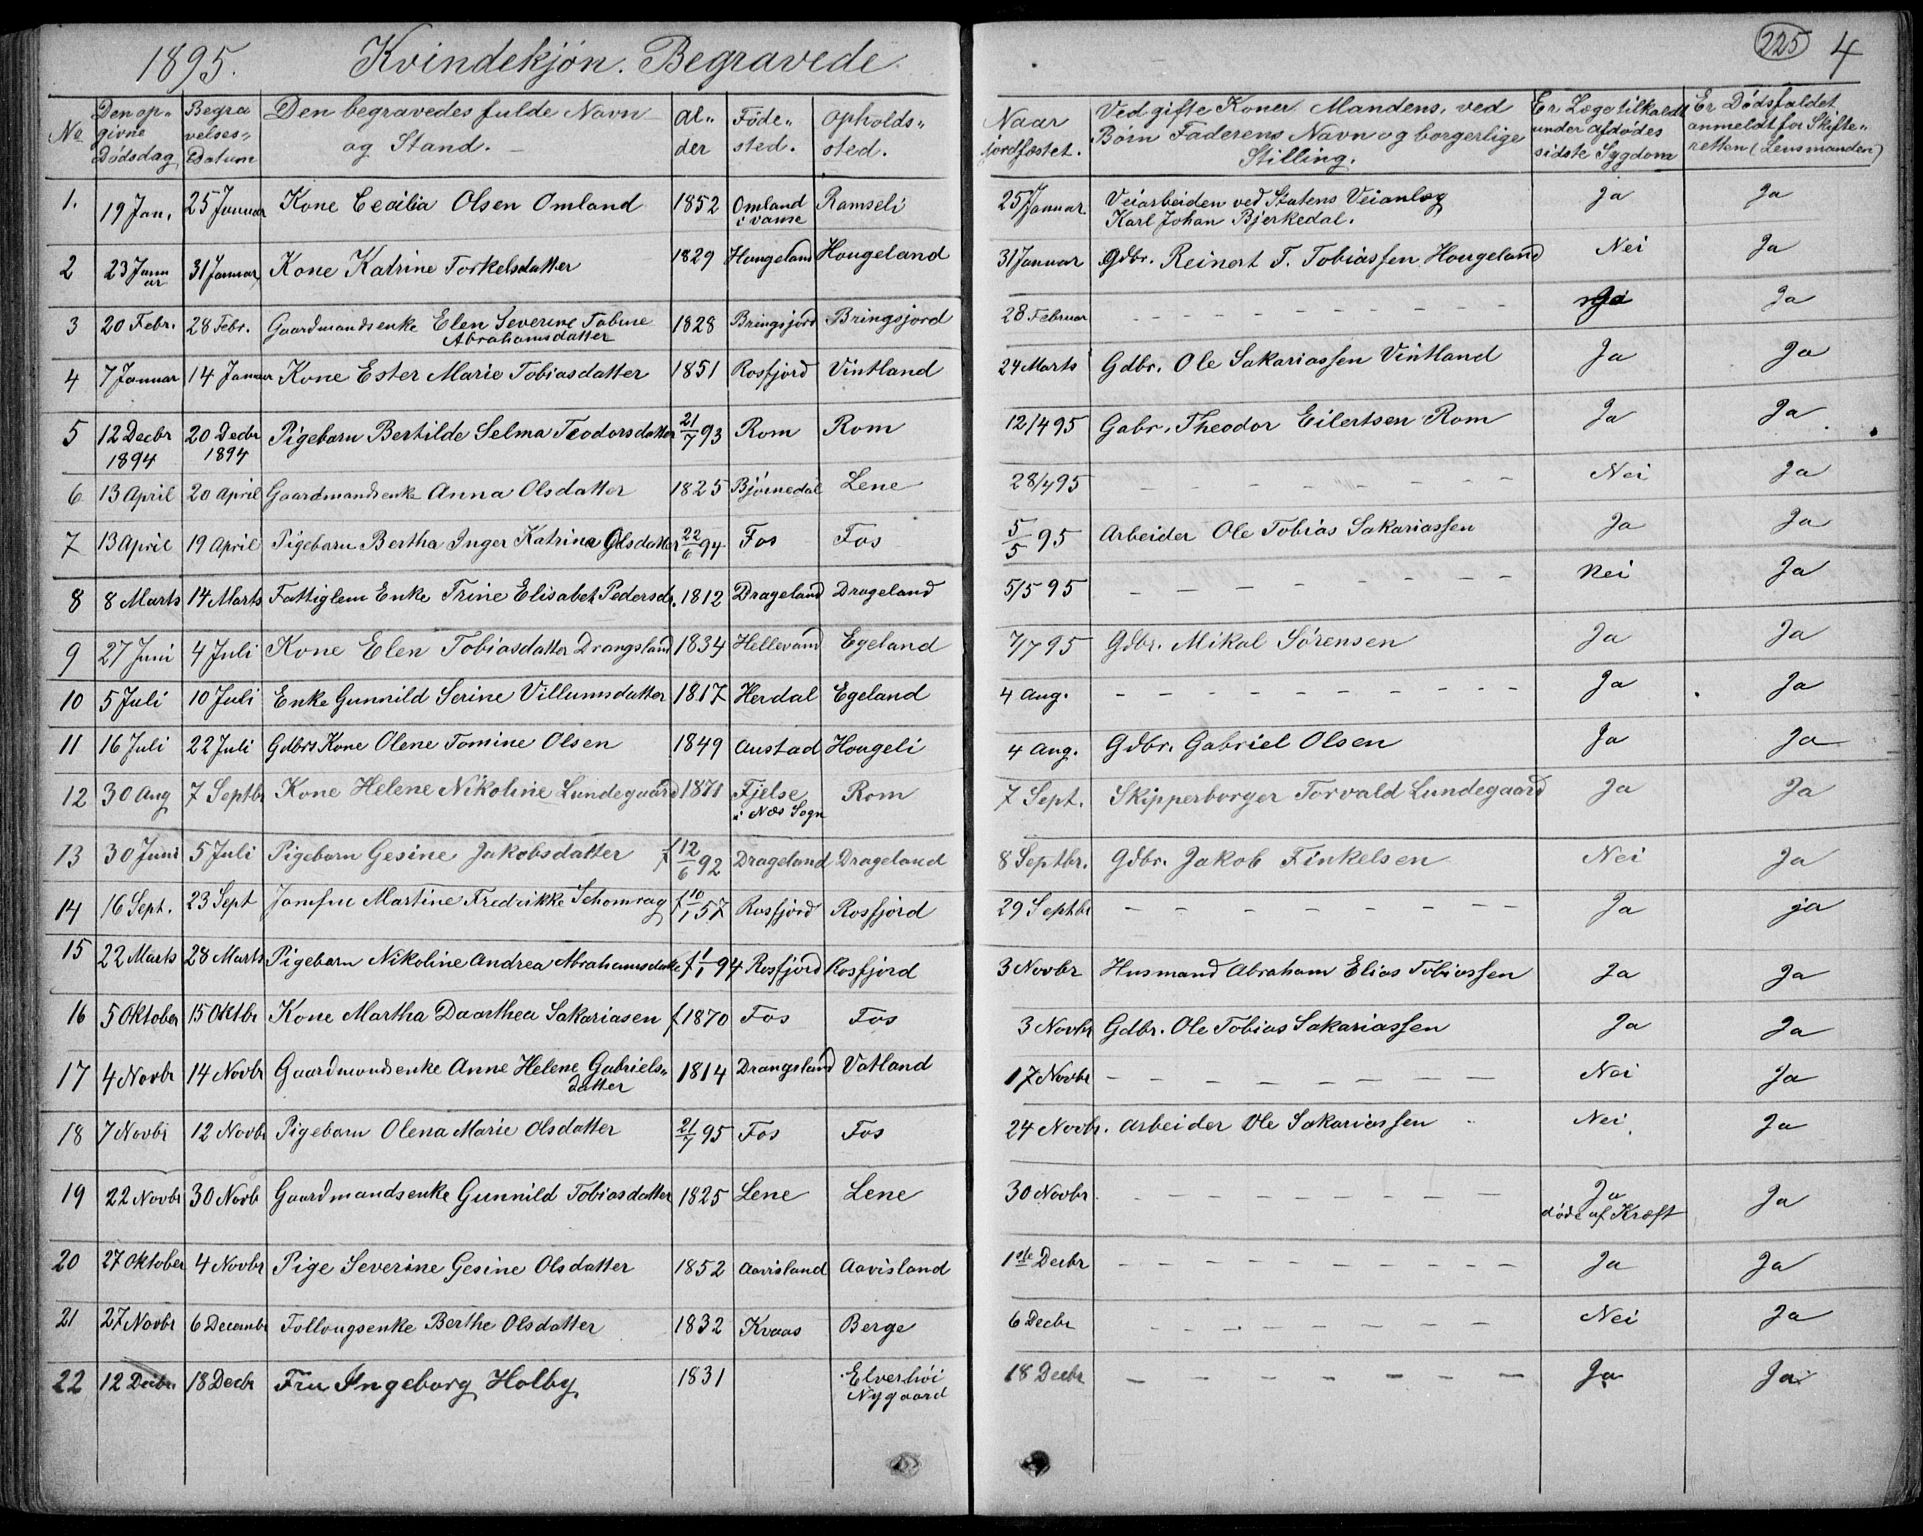 1895. Kvindekjøn. Begravede. 225 4
No. Den op- givne Dødsdag Begra velses- Datum Den begravedes fulde Navn og Stand. Al- der Føde- sted. Opholds- sted. Naar jordfæstet. Ved gifte Koner Mandens, ved Børn Faderens Navn og borgerlige Stilling. Er Læge tilkaldt under afdødes sidste Sygdom Er Dødsfaldet anmeldt for Skifte- retten (Lensmanden)
1. 19 Jan. 25 Januar Kone Cecilia Olsen Omland 1852 Omland i Vanse Ramseli 25 Januar Veiarbeiden ved Statens Veianlæg Karl Johan Bjerkedal. Ja Ja
2 23 Janu ar 31 Januar Kone Katrine Torkelsdatter 1829 Hougeland Hougeland 31 Januar Gdbr. Reinert T. Tobiassen Hougeland Nei Ja
3 20 Febr. 28 Febr. Gaardmandsenke Elen Severine Tobine Abrahamsdatter 1828 Bringsjord Bringsjord 28 Februar - - - - - - - - - Ja Ja
4 7 Januar 14 Januar Kone Ester Marie Tobiasdatter 1851 Rosfjord Vintland 24 Marts Gdbr. Ole Sakariassen Vintland Ja Ja
5 12 Decbr 1894 20 Decbr 1894 Pigebarn Bertilde Selma Teodorsdatter 21/7 93 Rom Rom 12/4 95 Gabr. Theodor Eilertsen Rom Ja Ja
6 13 April 20 April Gaardmandsenke Anna Olsdatter 1825 Bjørnedal Lene 28/4 95 - - - - - - - - - Nei Ja
7 13 April 19 April Pigebarn Bertha Inger Katrina Olsdatter 22/6 94 Fos Fos 5/5 95 Arbeider Ole Tobias Sakariassen Ja Ja
8 8 Marts 14 Marts Fattiglem Enke Trine Elisabet Pedersdr. 1812 Drageland Drageland 5/5 95 - - - - - - - - - Nei Ja
9 27 Juni 4 Juli Kone Elen Tobiasdatter Drangsland 1834 Hellevand Egeland 7/7 95 Gdbr. Mikal Sørensen Ja Ja
10 5 Juli 10 Juli Enke Gunnild Serine Villumsdatter 1817 Herdal Egeland 4 Aug. - - - - - - - - - - Ja Ja
11 16 Juli 22 Juli Gdbrs Kone Olene Tomine Olsen 1849 Austad Hougeli 4 Aug. Gdbr. Gabriel Olsen Ja Ja
12 30 Aug 7 Septbr Kone Helene Nikoline Lundegaard 1871 Fjelse i Næs Sogn Rom 7 Sept. Skipperborger Torvald Lundegaard Ja Ja
13 30 Juni 5 Juli Pigebarn Gesine Jakobsdatter f 12/6 92 Drageland Drageland 8 Septbr. Gdbr. Jakob Finkelsen Nei Ja
14 16 Sept. 23 Sept Jomfru Martine Fredrikke Schomrag f 10/1 57 Rosfjord Rosfjord 29 Septbr - - - - - - - - - Ja ja
15 22 Marts 28 Marts Pigebarn Nikoline Andrea Abrahamsdatte f 1/1 94 Rosfjord Rosfjord 3 Novbr Husmand Abraham Elias Tobiassen Ja Ja
16 5 Oktober 15 Oktbr Kone Martha Daarthea Sakariasen f 1870 Fos Fos 3 Novbr Gdbr. Ole Tobias Sakariassen Ja Ja
17 4 Novbr 14 Novbr Gaardmandsenke Anne Helene Gabriels- datter 1814 Drangsland Vatland 17 Novbr - - - - - - - - - Nei Ja
18 7 Novbr 12 Novbr Pigebarn Olena Marie Olsdatter 21/7 95 Fos Fos 24 Novbr. Arbeider Ole Sakariassen Nei Ja
19 22 Novbr 30 Novb Gaardmandsenke Gunnild Tobiasdatter 1825 Lene Lene 30 Novbr - - - - - - - - - Ja døde af Kræft Ja
20 27 Oktober 4 Novbr Pige Severine Gesine Olsdatter 1852 Aavisland Aavisland 1ste Decbr - - - - - - - - - - Ja Ja
21 27 Novbr 6 Decembr Follougsenke Berthe Olsdatter 1832 Kvaas Berge 6 Decbr - - - - - - - - - Nei Ja
22 12 Decbr. 18 Decbr Fru Ingeborg Holby 1831 Elverhøi Nygaard 18 Decbr - - - - - - - - - Ja Ja